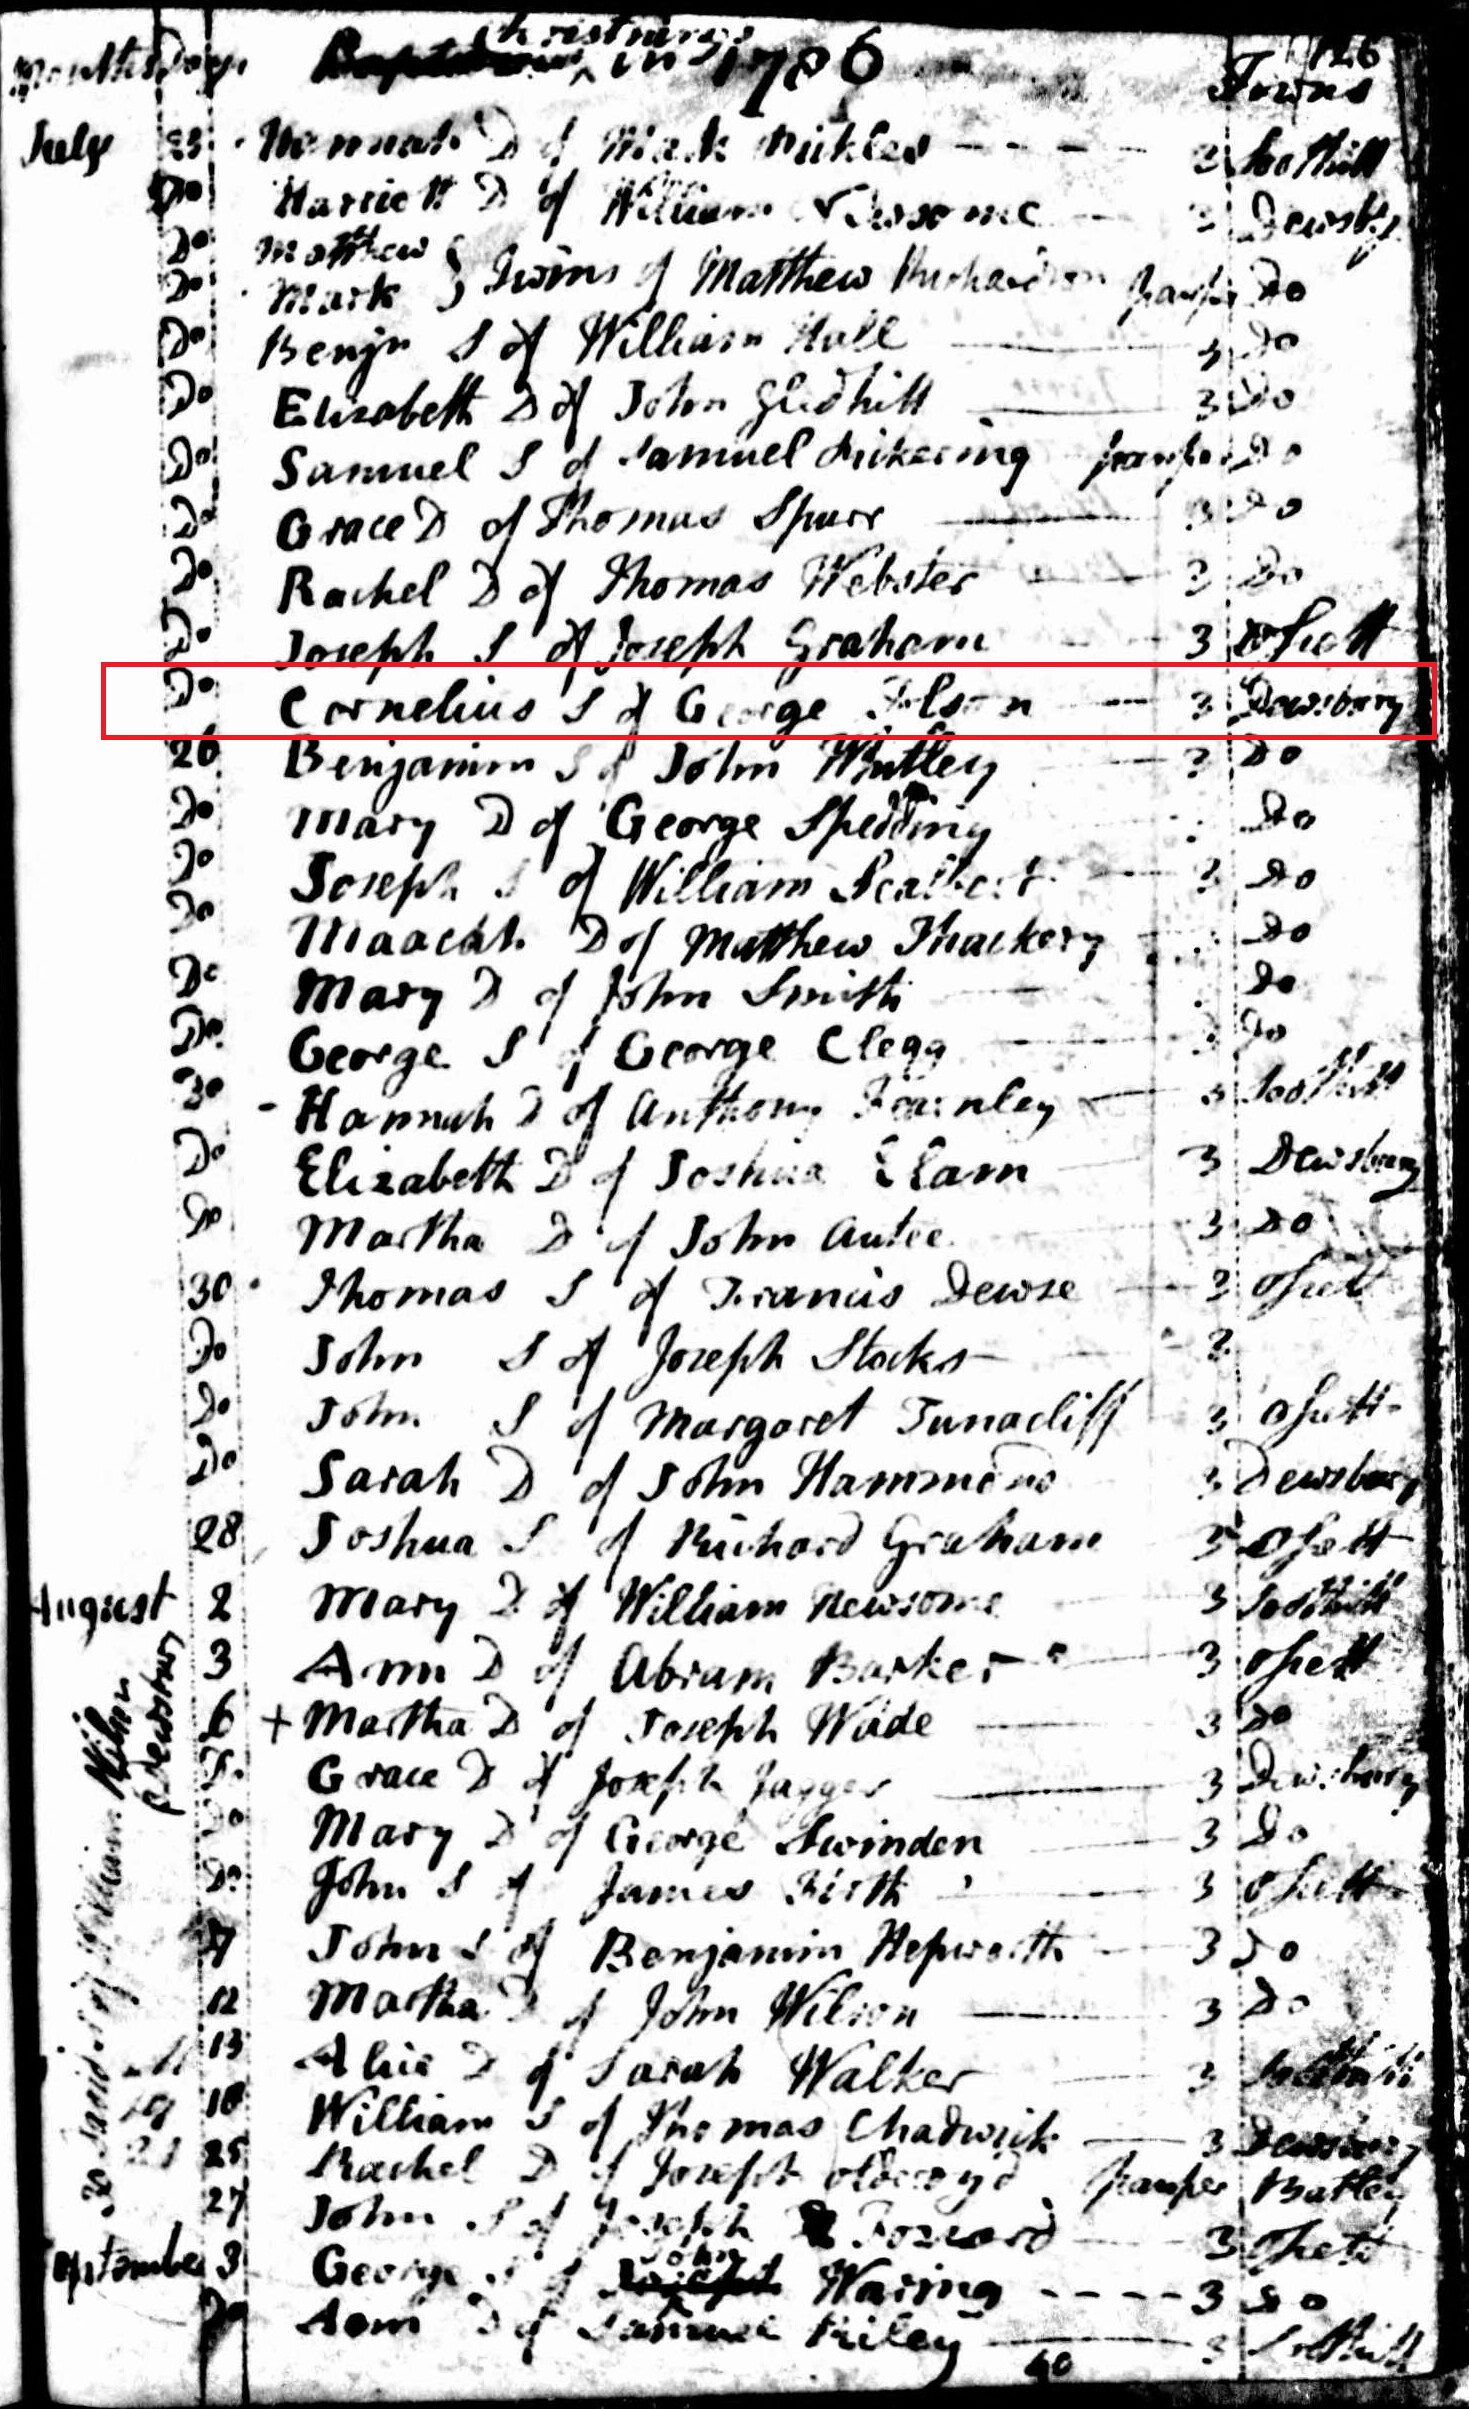 Months Days Christnings in 1786 126 Towns
July 23 Hannah D of Mark Pickles 3 Soothill
Do Harriett D of William Newsome 3 Dewsby
Do Matthew
Do Mark } Twins of Matthew Richardson pauper Do
Do Benjn S of William Hall 3 Do
Do Elizabeth D of John Gledhill 3 Do
Do Samuel S of Samuel Pickering pauper Do
Do Grace D of Thomas Spurr 3 Do
Do Rachel D of Thomas Webster 3 Do
Do Joseph S of Joseph Graham 3 Ossett
Do Cornelius S of George 3 Dewsbury
26 Benjamin S of John Whitley 3 Do
Do Mary D of George Spedding Do
Do Joseph S of William 3 Do
Do Maacah D of Matthew Thackery Do
Do Mary D of John Smith Do
Do George S of George Clegg 3 Do
30 Hannah D of Anthony Fearnley 3 Soothill
Do Elizabeth D of Joshua Elam 3 Dewsbury
Do Martha D of John Autee 3 Do
30 Thomas S of Francis Dewse 3 Ossett
Do John S of Joseph Stocks 3
Do John S of Margaret Tunacliff 3 Ossett
Do Sarah D of John Hammond 3 Dewsbury
28 Joshua S of Richard Graham 3 Ossett
August 2 Mary D of William Newsome 3 Soothill
3 Ann D of Abram Barker 3 Ossett
6 + Martha D of Joseph Wade 3 Do
Do Grace D of Joseph Jagger 3 Dewsbury
Do Mary D of George Swinden 3 Do
Do John S of James Firth 3 Ossett
7 John S of Benjamin Hepworth 3 Do
12 Martha D of John Wilson 3 Do
13 Alice D of Sarah Walker 3 Soothill
18 William S of Thomas Chadwick 3 Dewsbury
25 Rachel D of Joseph Oldroyd pauper Batley
27 John S of Joseph 3 Ossett
September 3 George S of John Waring 3 Do
Do Ann D of Samuel Riley 3 Soothill
40
30 David S of William Wilson Dewsbury